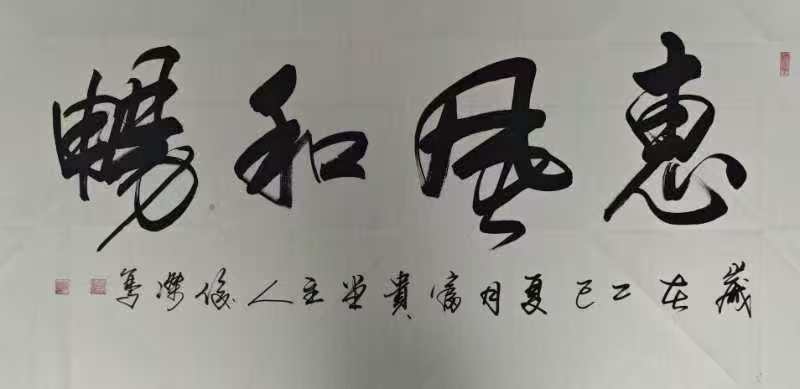 惠風和暢
歲在乙巳夏月富貴堂主人俊傑書